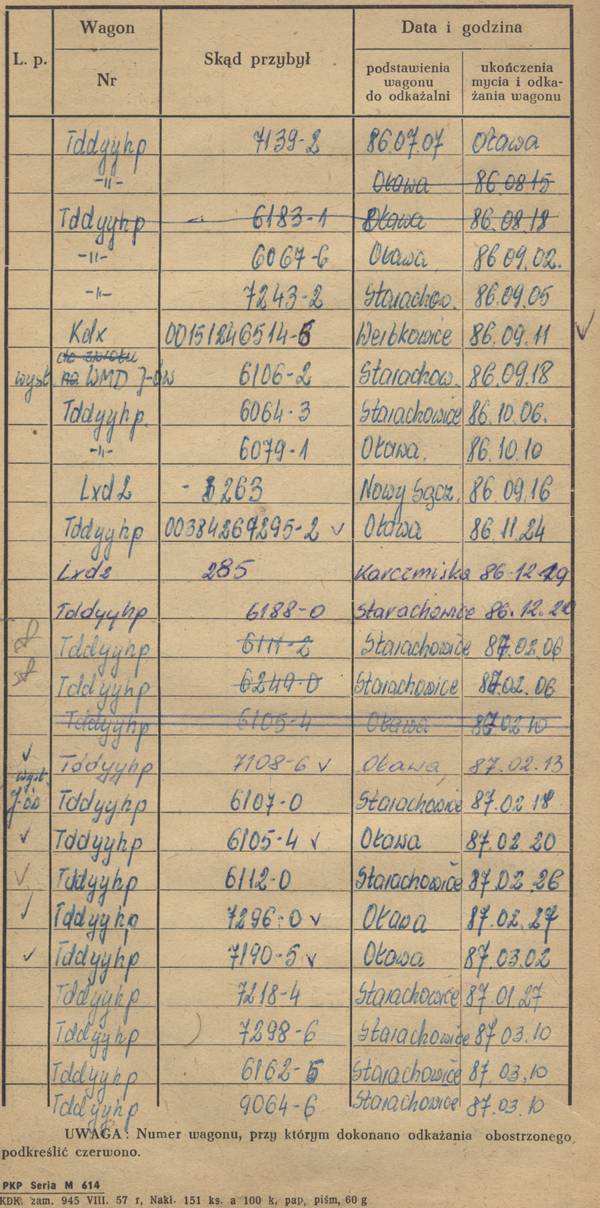 L. p. Wagon Nr Skąd przybył Data i godzina
podstawienia wagonu do odkażalni ukończenia mycia i odka-żania wagonu
Tddyyhp 7139-2 86.07.07 Oława
-"- Oława 86.08.15
Tddyyhp 6183-1 Oława 86.08.18
-"- 6067-6 Oława 86.09.02.
-"- 7243-2 Starachow. 86.09.05
Kdx 00151246514-6 Werbkowice 86.09.11 ✓
do zwrotu
wyst. na WMD J-ów 6106-2 Starachow. 86.09.18
Tddyyhp. 6064-3 Starachowice 86.10.06.
-"- 6079-1 Oława. 86.10.10
Lxd2 - 263 Nowy Sącz. 86.09.16
Tddyyhp 00384267295-2 ✓ Oława 86.11.24
Lxd2 285 Karczmiska 86-12-29
Tddyyhp 6188-0 Starachowice 86.12.29
Tddyyhp 6111-2 Starachowice 87.02.06
Tddyyhp 6249-0 Starachowice 87.02.06
Tddyyhp 6105-4 Oława 87.02.10
✓ Tddyyhp 7108-6 ✓ Oława, 87.02.13
wyst.
J-ów Tddyyhp 6107-0 Starachowice 87.02.18
✓ Tddyyhp 6105-4 ✓ Oława 87.02.20
✓ Tddyyhp 6112-0 Starachowice 87.02.26
✓ Tddyyhp 7296-0 ✓ Oława 87.02.27
✓ Tddyyhp 7190-5 ✓ Oława 87.03.02
Tddyyhp 7218-4 Starachowice 87.01.27
Tddyyhp ) 7298-6 Starachowice 87.03.10
Tddyyhp 6162-5 Starachowice 87.03.10
Tddyyhp 9064-6 Starachowice 87.03.10
UWAGA: Numer wagonu, przy którym dokonano odkażania obostrzonego,
podkreślić czerwono.
PKP Seria M 614
KDK. zam. 945 VIII. 57 r, Nakł. 151 ks. a 100 k, pap, piśm, 60 g